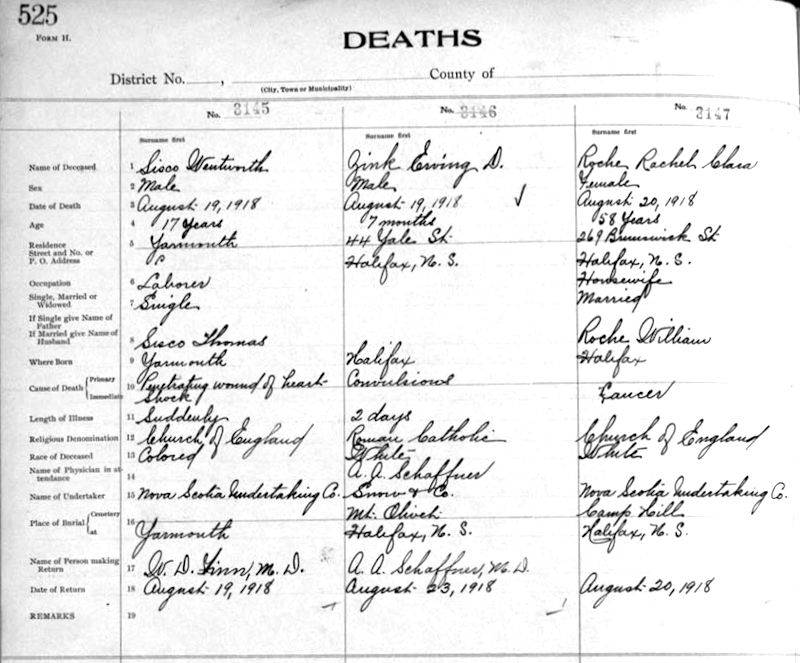 525
FORM H.
DEATHS
District No. , County of
(City, Town or Municipality)
No. 3145 No. 3146 No. 3147
Surname first Surname first Surname first
Name of Deceased 1 Sisco Wentworth Zink Ewing D. Roche Rachel Clara
Sex 2 Male Male Female
Date of Death 3 August 19, 1918 August 19, 1918 ✓ August 20, 1918
Age 4 17 Years 7 months 58 Years
Residence 5 Yarmouth 44 Yale St 269 Brunswick St
Street and No. or
P. O. Address Halifax, N. S. Halifax, N. S.
Occupation 6 Laborer Housewife
Single, Married or
Widowed 7 Single Married
If Single give Name of
Father
If Married give Name of
Husband 8 Sisco Thomas Roche William
Where Born 9 Yarmouth Halifax Halifax
Cause of Death { Primary 10 Penetrating wound of heart Convulsions Cancer
Immediate Shock
Length of Illness 11 Suddenly 2 days
Religious Denomination 12 Church of England Roman Catholic Church of England
Race of Deceased 13 Colored White White
Name of Physician in at-
tendance 14 A. A. Schaffner
Name of Undertaker 15 Nova Scotia Undertaking Co. Snow & Co. Nova Scotia Undertaking Co.
Place of Burial { Cemetery 16 Mt. Olivet Camp Hill
at Yarmouth Halifax, N. S. Halifax, N. S.
Name of Person making
Return 17 W. D. Finn, M. D. A. A. Schaffner, M. D.
Date of Return 18 August 19, 1918 August 23, 1918 August 20, 1918
REMARKS 19